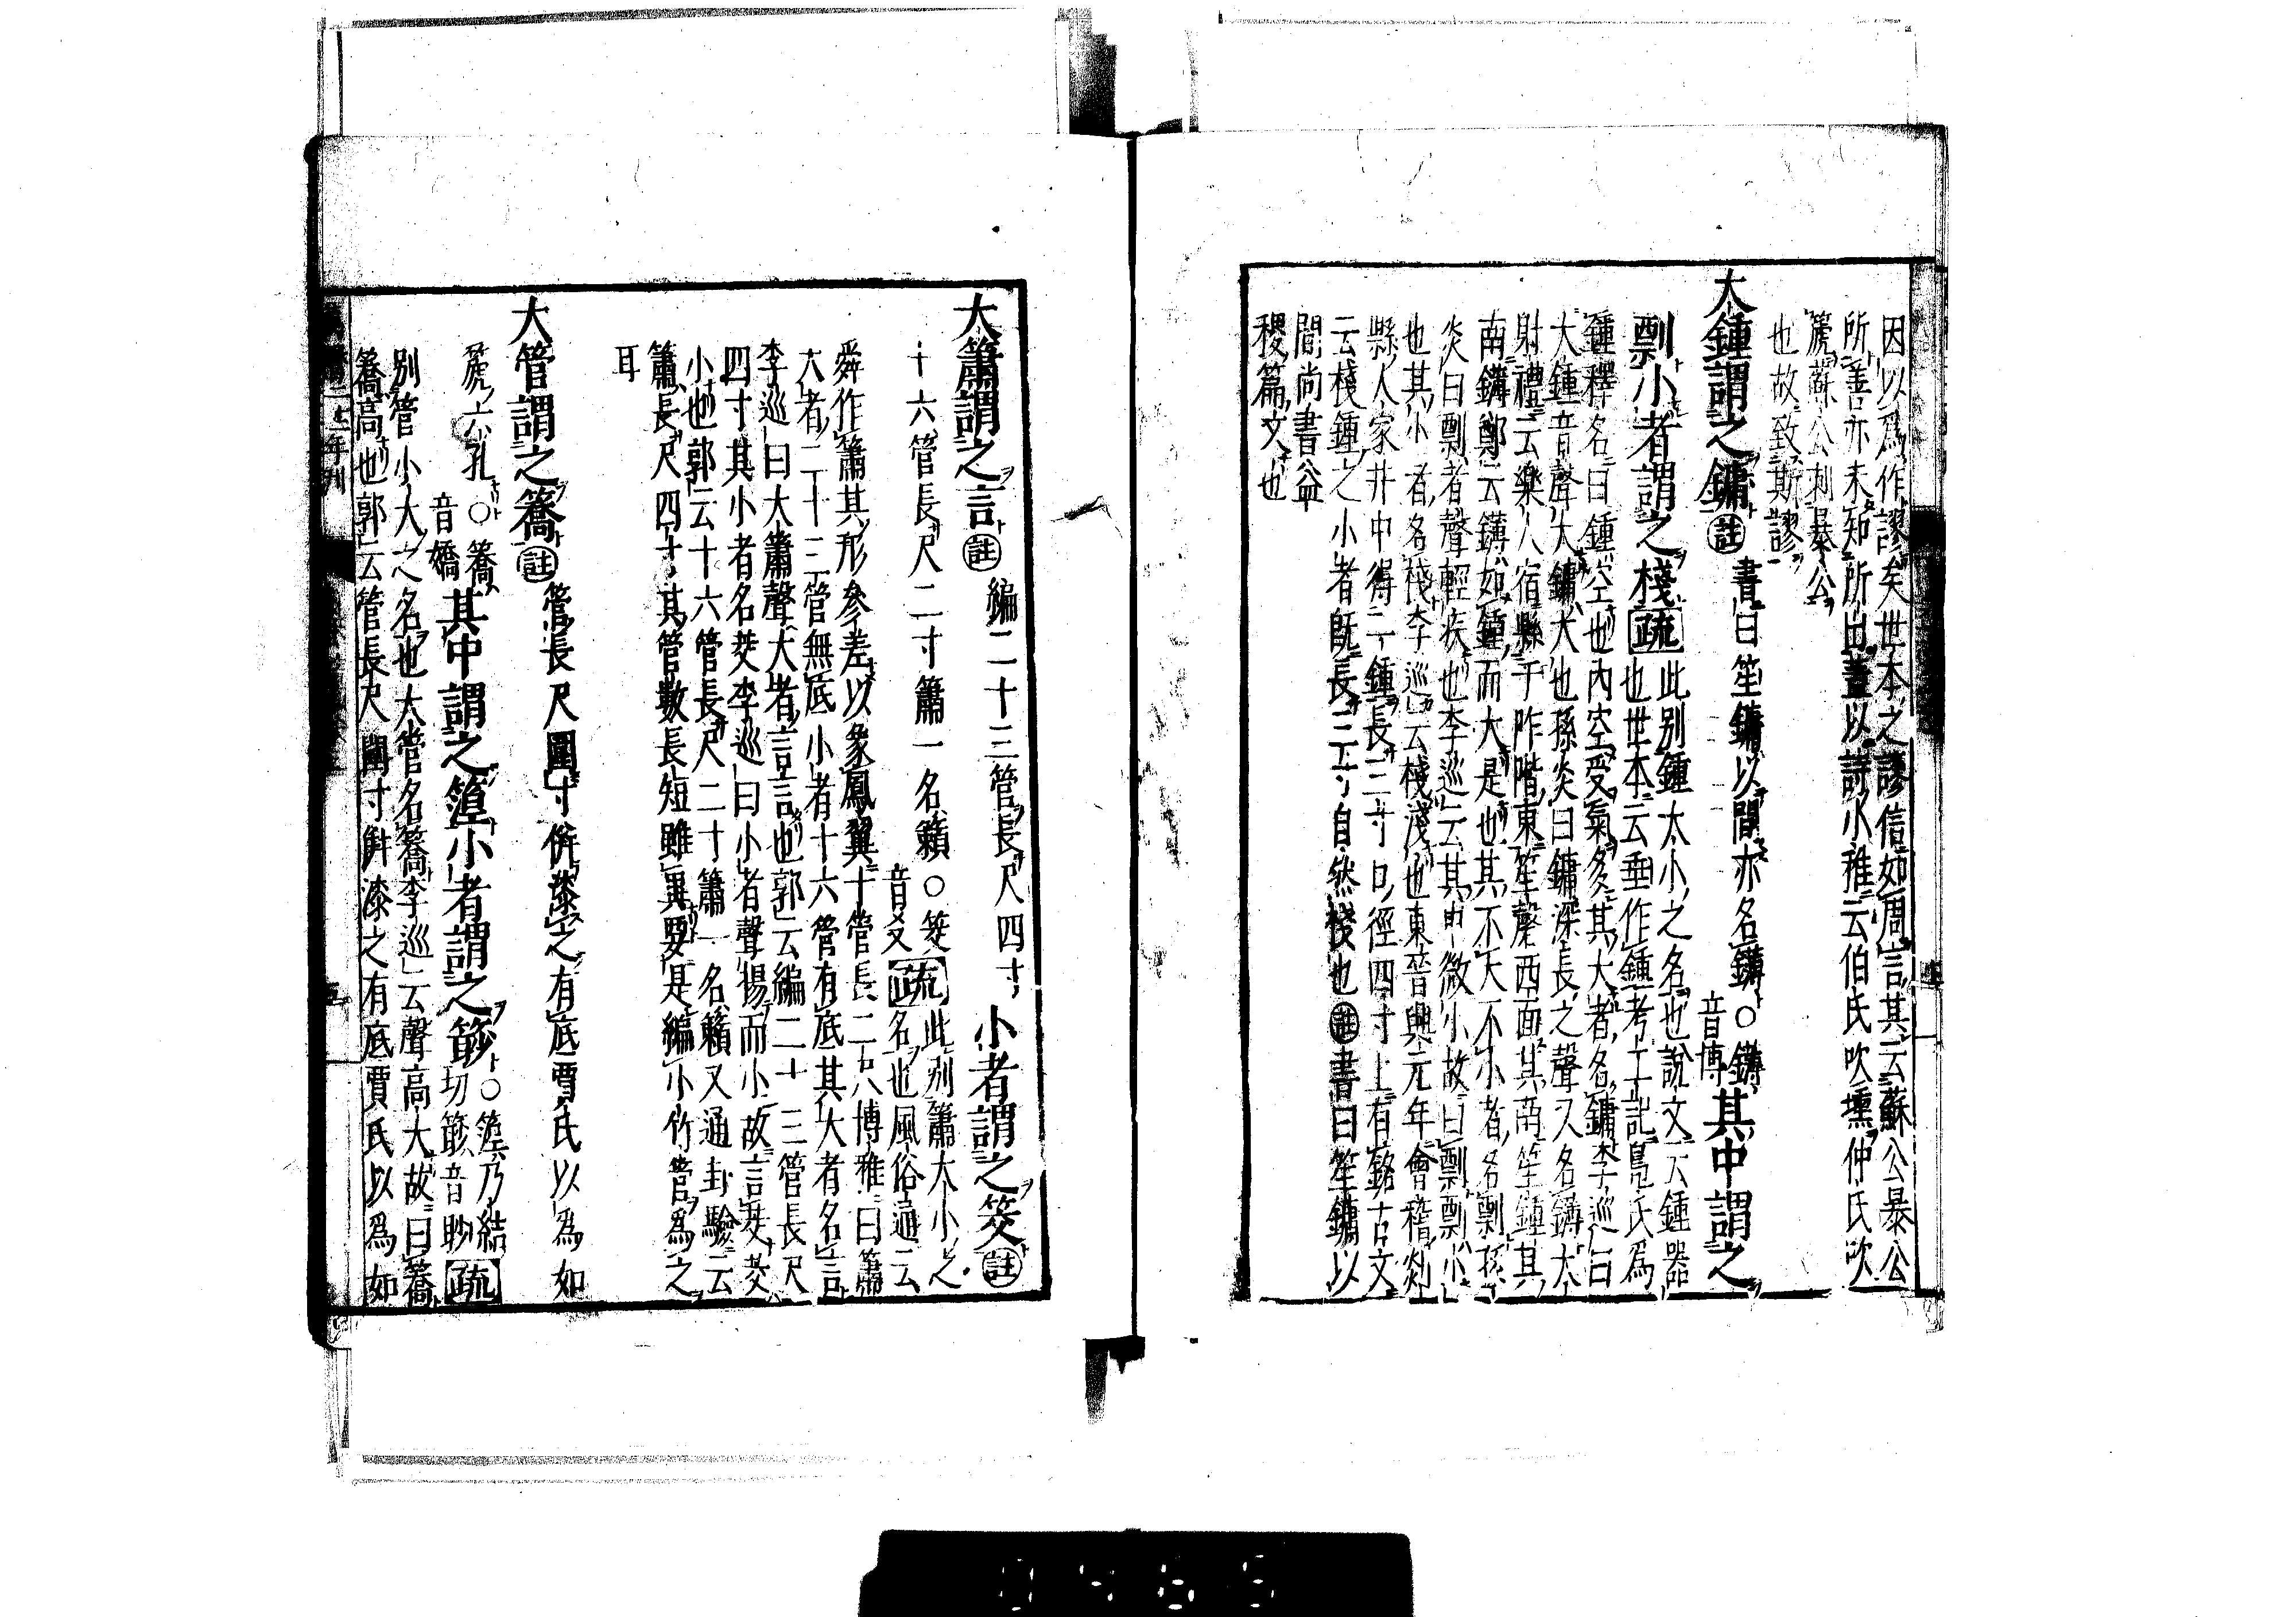 因以爲作謬矣世本之謬信如周言其云蘇公暴公
所善亦未知所出蓋以詩小雅云伯氏吹壎仲氏吹
篪蘇公刺暴公
也故致斯謬
大鍾謂之鏞註書曰笙鏞以間亦名鑮○鑮音博其中謂之
剽小者謂之棧疏此別鍾大小之名也說文云鍾器
也世本云垂作鍾考工記鳧氏爲
鍾釋名曰鍾空也內空受氣多其大者名鏞李巡曰
大鍾音聲大鏞大也孫炎曰鏞深長之聲又名鑮大
射禮云樂人宿縣于阼階東笙磬西面其南笙鍾其
南鑮鄭云鑮如鍾而大是也其不大不小者名剽孫
炎曰剽者聲輕疾也李巡云其中微小故曰剽剽小
也其小者名棧李巡云棧淺也東晉興元年會稽剡
縣人家井中得一鍾長三寸口徑四寸上有銘古文
云棧鍾之小者既長三寸自然棧也註書曰笙鏞以
間尚書益
稷篇文也
大簫謂之言註編二十三管長尺四寸小者謂之筊註
十六管長尺二寸簫一名籟○筊音爻疏此別簫大小之
名也風俗通云
舜作簫其形參差以象鳳翼十管長二尺博雅曰簫
大者二十三管無底小者十六管有底其大者名言
李巡曰大簫聲大者言言也郭云編二十三管長尺
四寸其小者名筊李巡曰小者聲揚而小故言筊筊
小也郭云十六管長尺二寸簫一名籟又通卦驗云
簫長尺四寸其管數長短雖異要是編小竹管爲之
耳
大管謂之簥註管長尺圍寸併漆之有底賈氏以爲如
篪六孔○簥音嬌其中謂之篞小者謂之篎○篞乃結切篎音眇疏
別管小大之名也大管名簥李巡云聲高大故曰簥
簥高也郭云管長尺圍寸併漆之有底賈氏以爲如